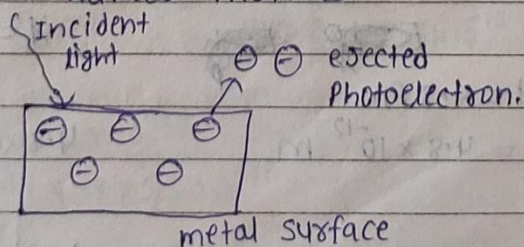 Incident
light
ejected
Photoelectron.
metal surface